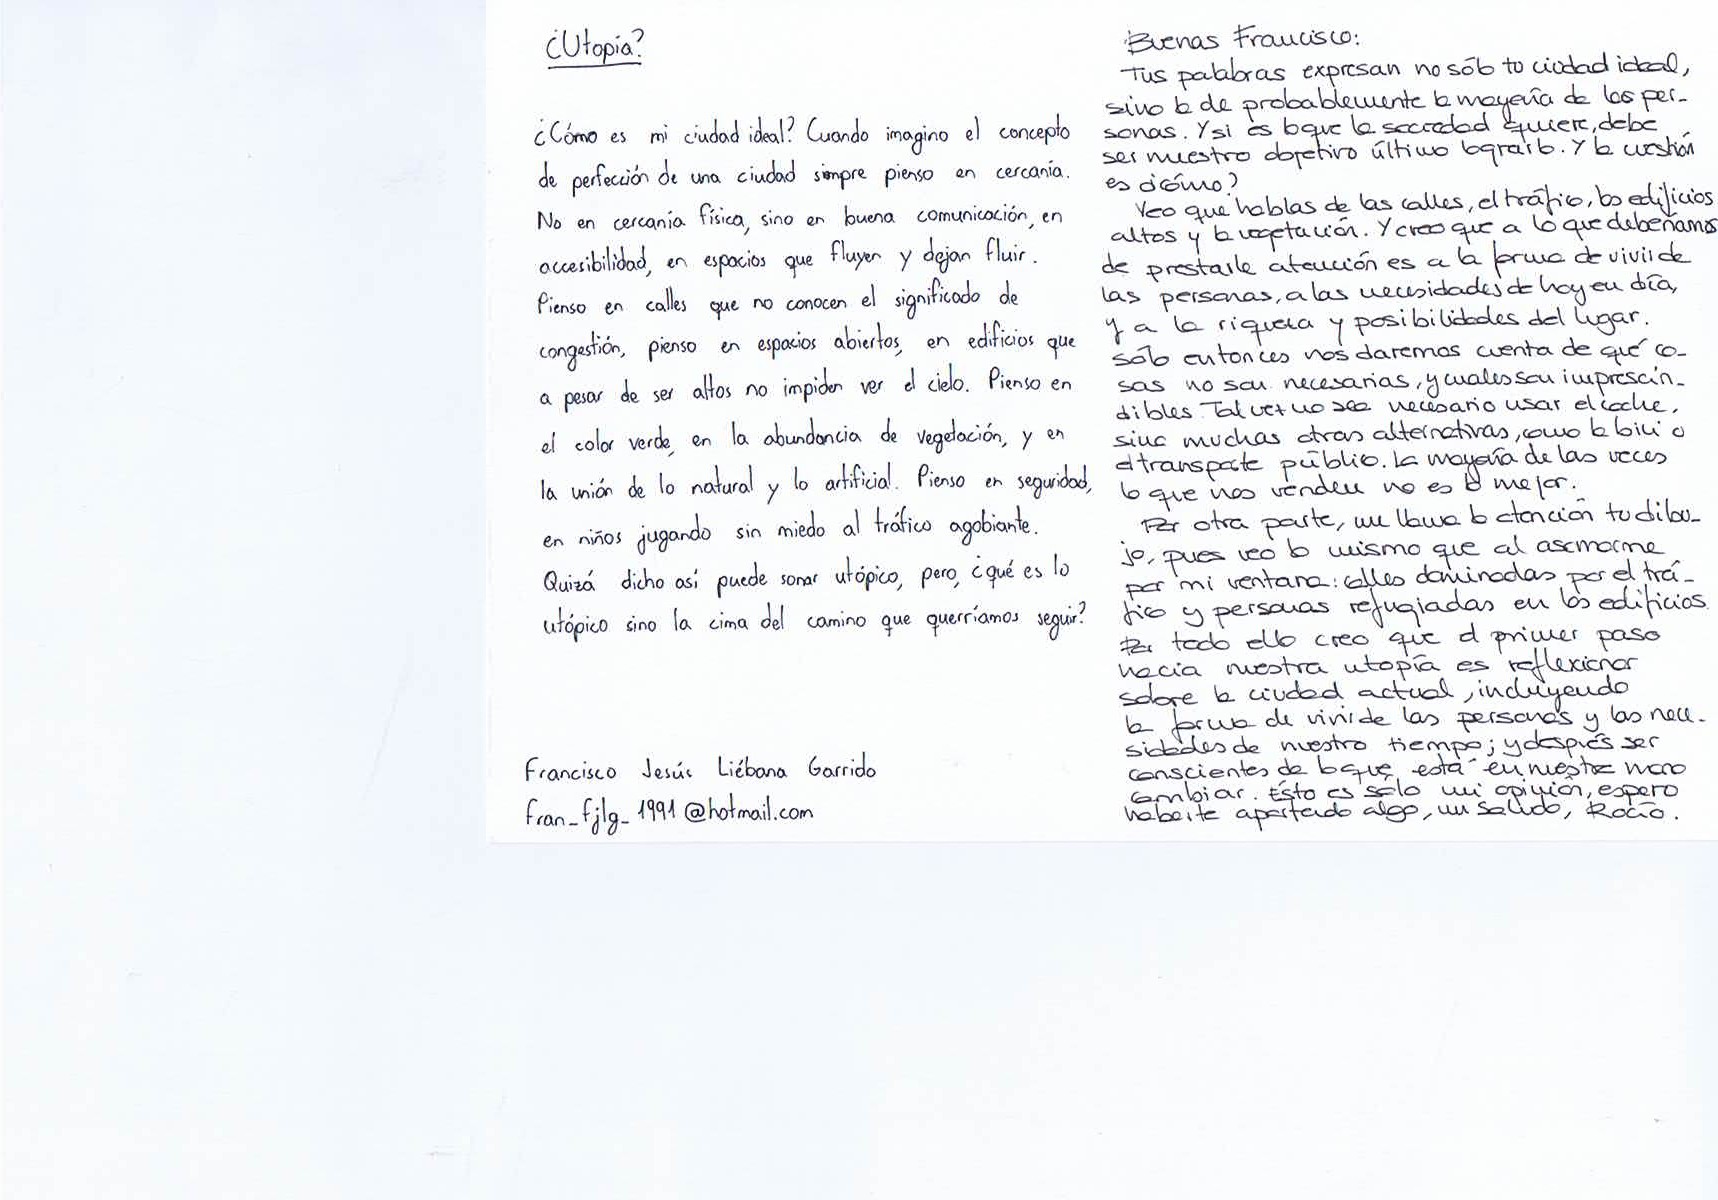 ¿Utopía?
¿Cómo es mi ciudad ideal? Cuando imagino el concepto
de perfección de una ciudad siempre pienso en cercanía.
No en cercanía física, sino en buena comunicación, en
accesibilidad, en espacios que fluyen y dejan fluir.
Pienso en calles que no conocen el significado de
congestión, pienso en espacios abiertos, en edificios que
a pesar de ser altos no impiden ver el cielo. Pienso en
el color verde, en la abundancia de vegetación, y en
la unión de lo natural y lo artificial. Pienso en seguridad,
en niños jugando sin miedo al tráfico agobiante.
Quizá dicho así puede sonar utópico, pero, ¿qué es lo
utópico sino la cima del camino que querríamos seguir?
Francisco Jesús Liébana Garrido
fran_fjlg_1991@hotmail.com
Buenas Francisco:
Tus palabras expresan no sólo tu ciudad ideal,
sino la de probablemente la mayoría de las per-
sonas. Y si es lo que la sociedad quiere, debe
ser nuestro objetivo último lograrlo. Y la cuestión
es ¿cómo?
Veo que hablas de las calles, el tráfico, los edificios
altos y la vegetación. Y creo que a lo que deberíamos
de prestarle atención es a la forma de vivir de
las personas, a las necesidades de hoy en día,
y a la riqueza y posibilidades del lugar.
Sólo entonces nos daremos cuenta de qué co-
sas no son necesarias, y cuales son imprescin-
dibles. Tal vez no sea necesario usar el coche,
sino muchas otras alternativas, como la bici o
el transporte público. La mayoría de las veces
lo que nos venden no es lo mejor.
Por otra parte, me llama la atención tu dibu-
jo, pues veo lo mismo que al asomarme
por mi ventana: calles dominadas por el trá-
fico y personas refugiadas en los edificios.
Por todo ello creo que el primer paso
hacia nuestra utopía es reflexionar
sobre la ciudad actual, incluyendo
la forma de vivir de las personas y las nece-
sidades de nuestro tiempo; y después ser
conscientes de lo que está en nuestra mano
cambiar. Ésto es sólo mi opinión, espero
haberte aportado algo, un saludo, Rocío.